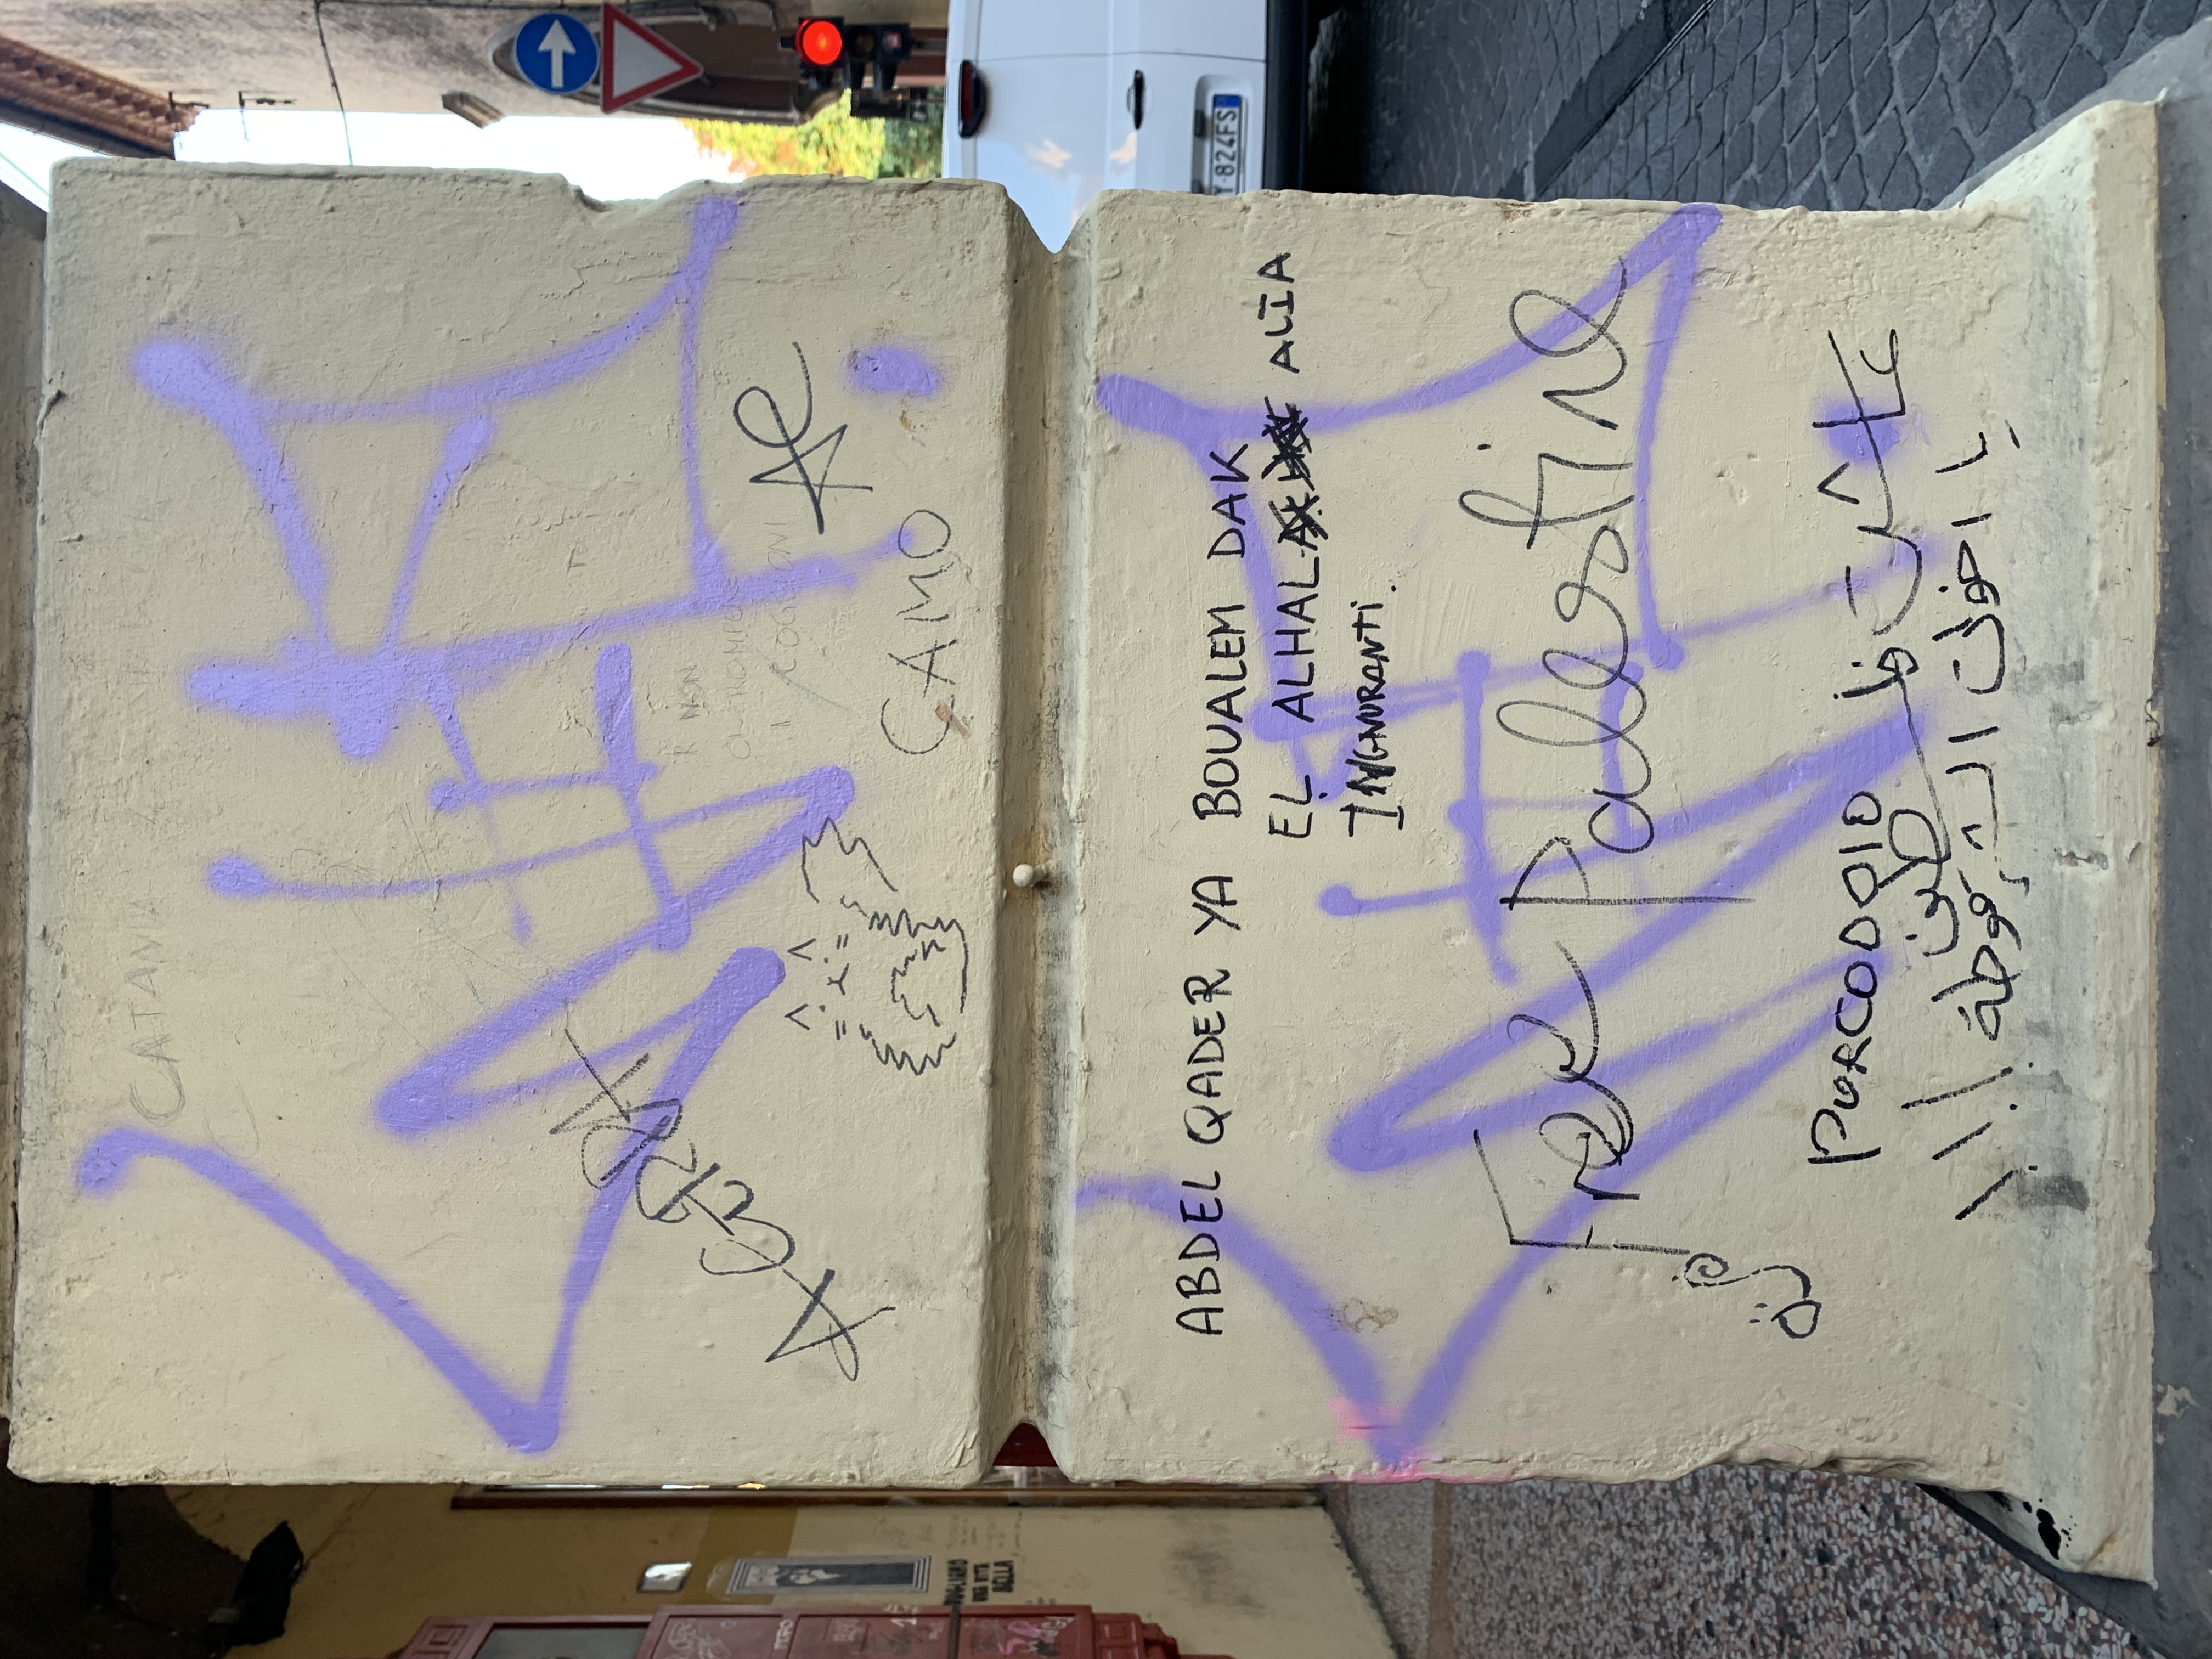 CATANIA
ACERRA
R NON
CI ROMPERE
I COGLIONI
AC
CAMO
UNA VITA
BELLA
824FS
ABDEL QADER YA BOUALEM DAK
EL ALHAL ALIA
INGNURANTI.
Free Palestine
PORCODDIO
عاشت فلسطين
يا اخوات الشرموطة !!!